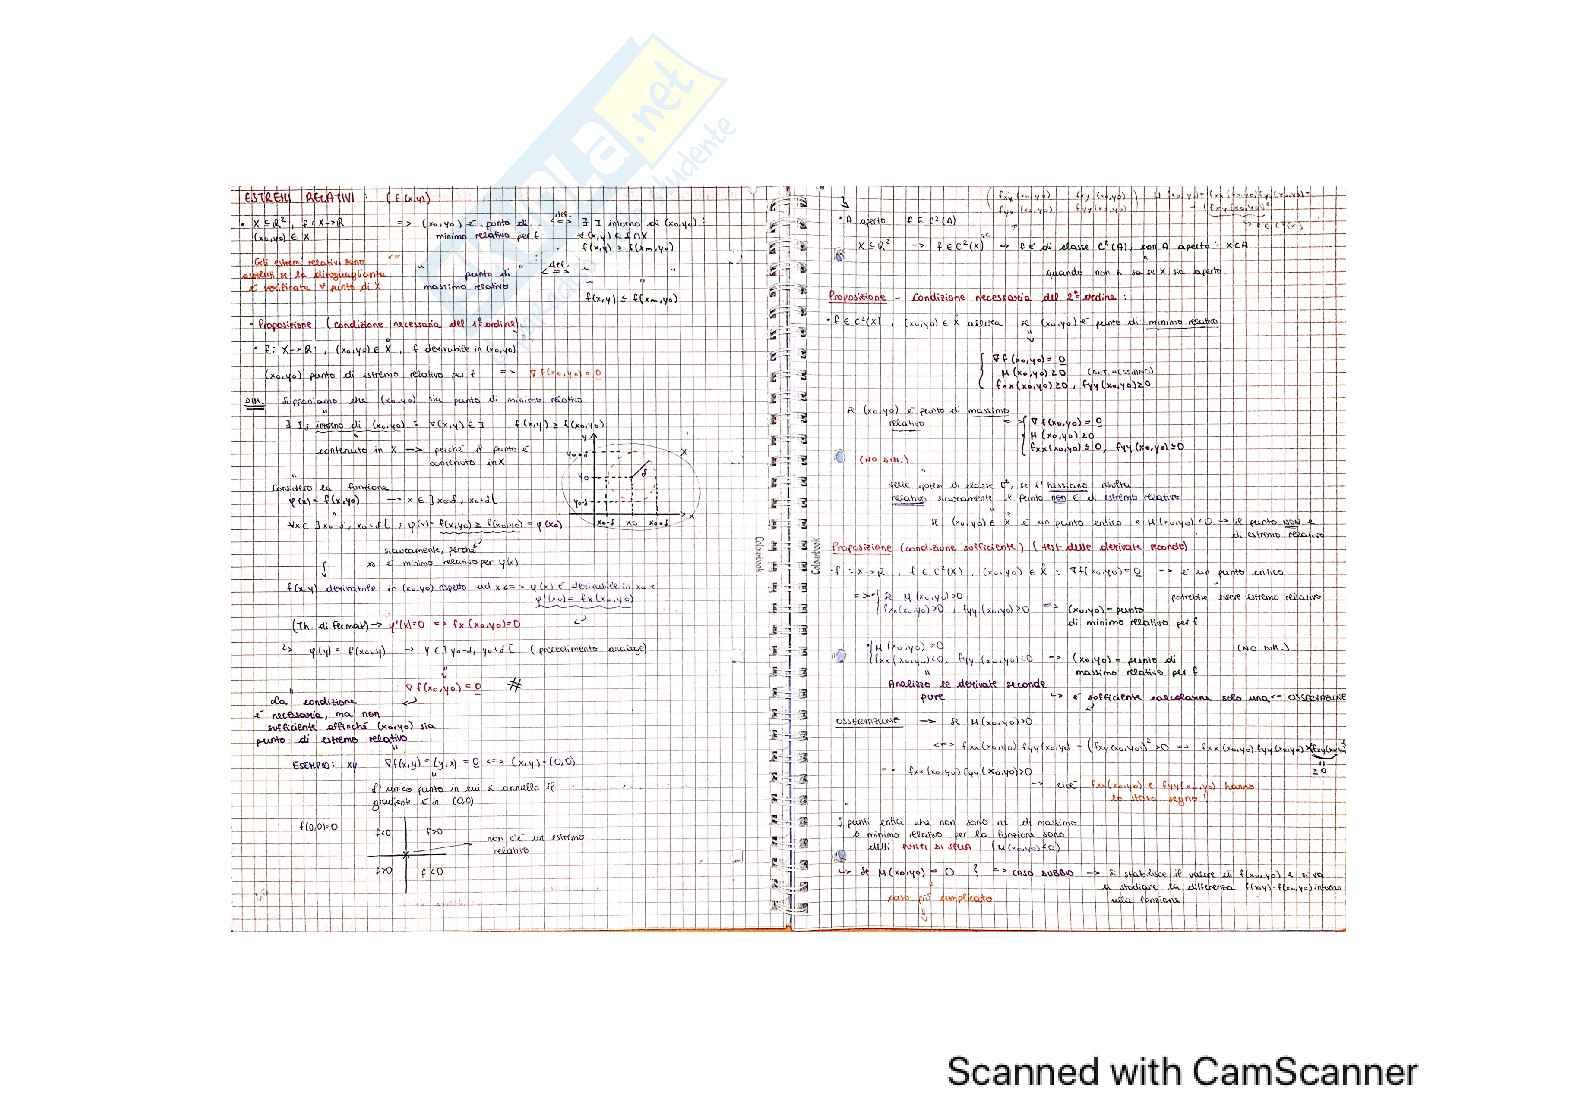 ESTREMI RELATIVI : (f(x,y))
• X ⊆ R², f: X→R => (x₀,y₀) è punto di minimo relativo per f <=> def. ∃ I intorno di (x₀,y₀) :
(x₀,y₀) ∈ X
∀(x,y) ∈ I∩X
f(x,y) ≥ f(x₀,y₀)
Gli estremi relativi sono
è verificata ∀ punto di X
" punto di " <=> def.
massimo relativo
f(x,y) ≤ f(x₀,y₀)
• Proposizione (condizione necessaria del 1° ordine)
• f: X→R, (x₀,y₀) ∈ X̊, f derivabile in (x₀,y₀)
(x₀,y₀) punto di estremo relativo per f => ∇f(x₀,y₀) = 0
DIM. Supponiamo che (x₀,y₀) sia punto di minimo relativo
intorno di (x₀,y₀) : ∀(x,y) ∈ I f(x,y) ≥ f(x₀,y₀)
contenuto in X → perché il punto è
contenuto in X
y
x
X
y₀+δ
y₀
y₀-δ
x₀-δ x₀ x₀+δ
Considero la funzione
φ(x) = f(x,y₀) → x ∈ ]x₀-δ, x₀+δ[
∀x ∈ ]x₀-δ, x₀+δ[ , φ(x) = f(x,y₀) ≥ f(x₀,y₀) = φ(x₀)
sicuramente, perché
x₀ è minimo relativo per φ(x)
f(x,y) derivabile in (x₀,y₀) rispetto ad x <=> φ(x) è derivabile in x₀ e
φ'(x₀) = fx(x₀,y₀)
(Th. di Fermat) → φ'(x)=0 => fx(x₀,y₀)=0
φ(y) = f(x₀,y) → y ∈ ]y₀-δ, y₀+δ[ (procedimento analogo)
∇f(x₀,y₀) = 0 #
La condizione
è necessaria, ma non
sufficiente affinché (x₀,y₀) sia
punto di estremo relativo
ESEMPIO: xy ∇f(x,y) = (y,x) = 0 <=> (x,y) = (0,0)
l'unico punto in cui si annulla il
gradiente è in (0,0)
f(0,0)=0
f<0 f>0
non c'è un estremo
relativo
f>0 f<0
• A aperto f ∈ C²(A)
X ⊆ R² → f ∈ C²(X) → f è di classe C²(A), con A aperto : X⊂A
quando non si sa se X sia aperto
Proposizione - Condizione necessaria del 2° ordine :
• f ∈ C²(X), (x₀,y₀) ∈ X̊ allora se (x₀,y₀) è punto di minimo relativo
∇f(x₀,y₀) = 0
H(x₀,y₀) ≥ 0 (DET. HESSIANO)
fxx(x₀,y₀) ≥ 0, fyy(x₀,y₀) ≥ 0
Se (x₀,y₀) è punto di massimo
relativo
=> ∇f(x₀,y₀) = 0
H(x₀,y₀) ≥ 0
fxx(x₀,y₀) ≤ 0, fyy(x₀,y₀) ≤ 0
(NO DIM.)
nelle ipotesi di classe C², se l'hessiano risulta
relativo sicuramente il punto non è di estremo relativo
Se (x₀,y₀) ∈ X̊ è un punto critico e H(x₀,y₀) < 0 → il punto NON è
di estremo relativo
Proposizione (condizione sufficiente) (test delle derivate seconde)
• f : X→R, f ∈ C²(X), (x₀,y₀) ∈ X̊ : ∇f(x₀,y₀) = 0 → è un punto critico
potrebbe essere estremo relativo
=> • Se H(x₀,y₀) > 0
fxx(x₀,y₀)>0, fyy(x₀,y₀)>0 => (x₀,y₀) = punto
di minimo relativo per f
• H(x₀,y₀) > 0 (NO DIM.)
fxx(x₀,y₀)<0, fyy(x₀,y₀)<0 => (x₀,y₀) = punto di
massimo relativo per f
Analizzo le derivate seconde
pure ↳ è sufficiente calcolarne solo una <- OSSERVAZIONE
OSSERVAZIONE → Se H(x₀,y₀)>0
<=> fxx(x₀,y₀) fyy(x₀,y₀) - (fxy(x₀,y₀))² > 0 => fxx(x₀,y₀) fyy(x₀,y₀) >
≥0
=> fxx(x₀,y₀) fyy(x₀,y₀) > 0
→ cioè fxx(x₀,y₀) e fyy(x₀,y₀) hanno
lo stesso segno !
I punti critici che non sono né di massimo
o minimo relativo per la funzione sono
detti PUNTI DI SELLA (H(x₀,y₀)<0)
↳ Se H(x₀,y₀) = 0 => CASO DUBBIO → si stabilisce il valore di f(x₀,y₀) e si va
a studiare la differenza f(x,y) - f(x₀,y₀)
caso più complicato
Colourbook
Colourbook
Scanned with CamScanner